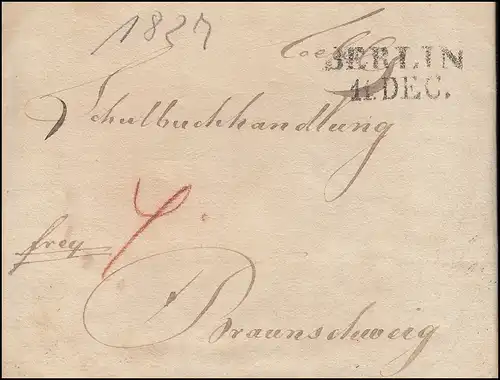 1827
Loebl.
BERLIN
11. DEC.
Schulbuchhandlung
frey
Braunschweig